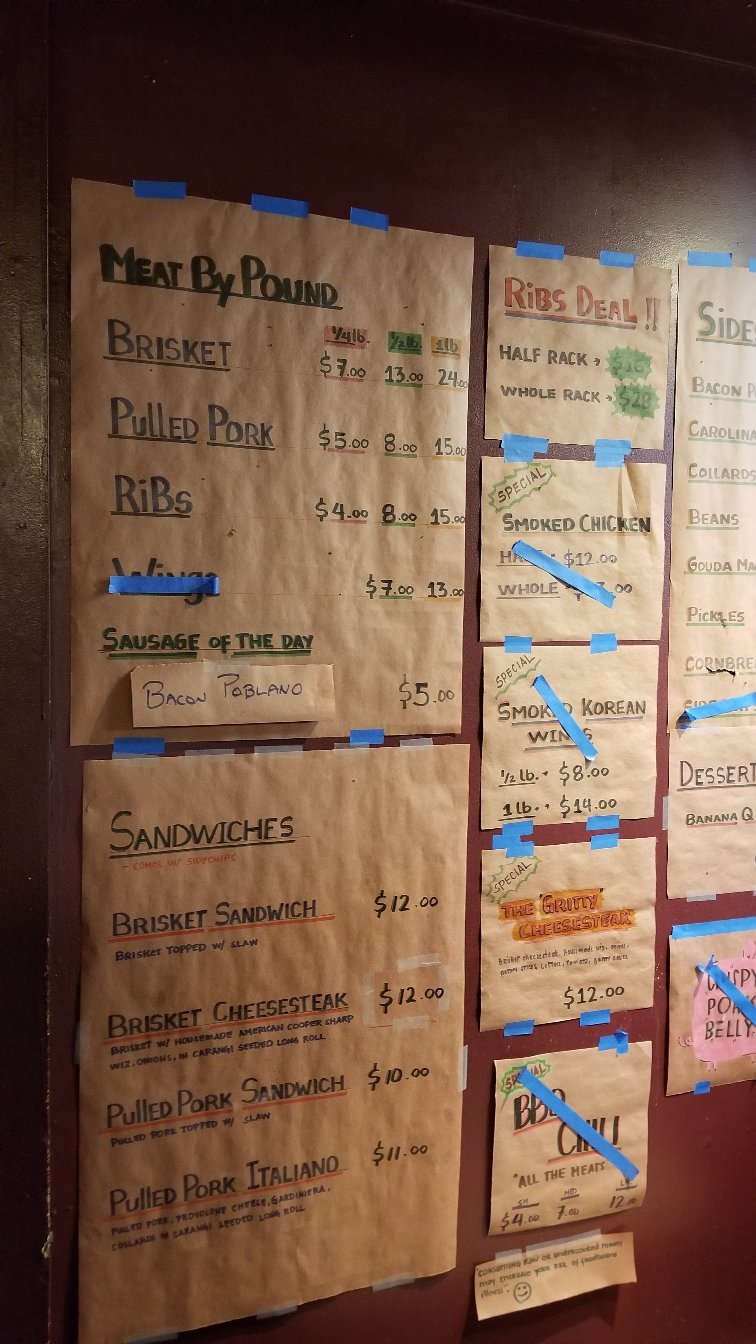 MEAT By POUND
1/4 lb. 1/2 lb. 1 lb
BRISKET $7.00 13.00 24.00
PULLED PORK $5.00 8.00 15.00
RiBS $4.00 8.00 15.00
Wings $7.00 13.00
SAUSAGE OF THE DAY
BACON POBLANO $5.00
SANDWICHES
- COMES W/ SIDECHIPS
BRISKET SANDWICH $12.00
BRISKET TOPPED W/ SLAW
BRISKET CHEESESTEAK $12.00
BRISKET W/ HOUSEMADE AMERICAN COOPER SHARP
WIZ, ONIONS, IN CARANGI SEEDED LONG ROLL
PULLED PORK SANDWICH $10.00
PULLED PORK TOPPED W/ SLAW
PULLED PORK ITALIANO $11.00
PULLED PORK, PROVOLONE CHEESE, GARDINIERA,
COLLARDS IN CARANGI SEEDED LONG ROLL
RiBS DEAL !!
HALF RACK $16
WHOLE RACK $28
SPECIAL
SMOKED CHICKEN
$12.00
WHOLE
SPECIAL
SMOKED KOREAN
WINGS
1/2 lb. $8.00
1 lb. $14.00
SPECIAL
THE "GRITTY"
CHEESESTEAK
Brisket cheesesteak,
$12.00
SPECIAL
BBQ
CHILI
"ALL THE MEATS
SM MED LG
$4.00 7.00 12.00
"CONSUMING RAW OR undercooked
may increase your risk of foodborne
illness"
SIDES
BACON
CAROLINA
COLLARDS
BEANS
GOUDA
PICKLES
CORNBREAD
DESSERT
BANANA
CRISPY
PORK
BELLY